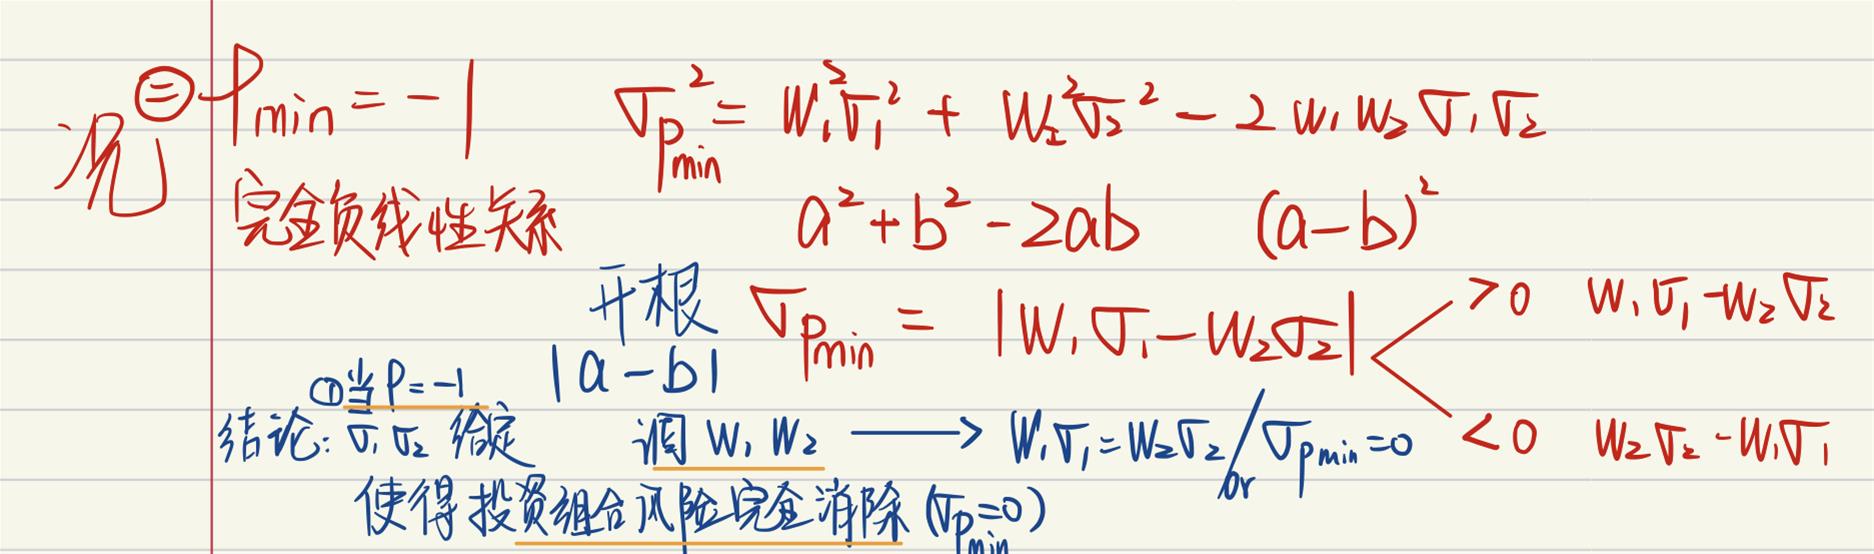 况 ㊂ ρmin = -1 σ²pmin = W₁²σ₁² + W₂²σ₂² - 2 W₁ W₂ σ₁ σ₂
完全负线性关系 a² + b² - 2ab (a-b)²
开根 σpmin = |W₁σ₁ - W₂σ₂| >0 W₁σ₁ - W₂σ₂
|a-b| <0 W₂σ₂ - W₁σ₁
①当ρ=-1
结论: σ₁ σ₂ 给定 调 W₁ W₂ → W₁σ₁ = W₂σ₂ / or σpmin = 0
使得投资组合风险完全消除 (σpmin=0)